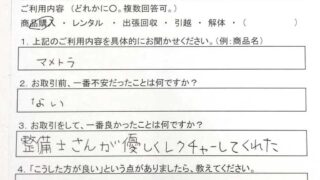 ご利用内容 (どれかに○。複数回答可。)
商品購入 ・ レンタル ・ 出張回収 ・ 引越 ・ 解体 ・ (
1. 上記のご利用内容を具体的にお聞かせください。(例:商品名)
マメトラ
2. お取引前、一番不安だったことは何ですか?
よい
3. お取引をして、一番良かったことは何ですか?
整備士さんが優しくレクチャーしてくれた
4. 「こうした方が良い」という点がありましたら、教えてください。